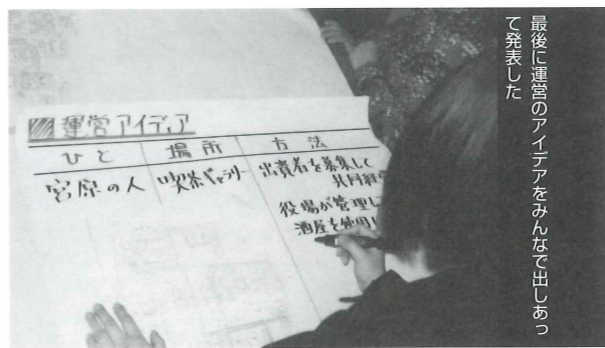 最後に運営のアイデアをみんなで出しあっ
て発表した
運営アイディア
ひと 場所 方法
宮原の人 喫茶ギャラリー 出資者を募集して
共同経営
役場が管理し
酒屋を使用し